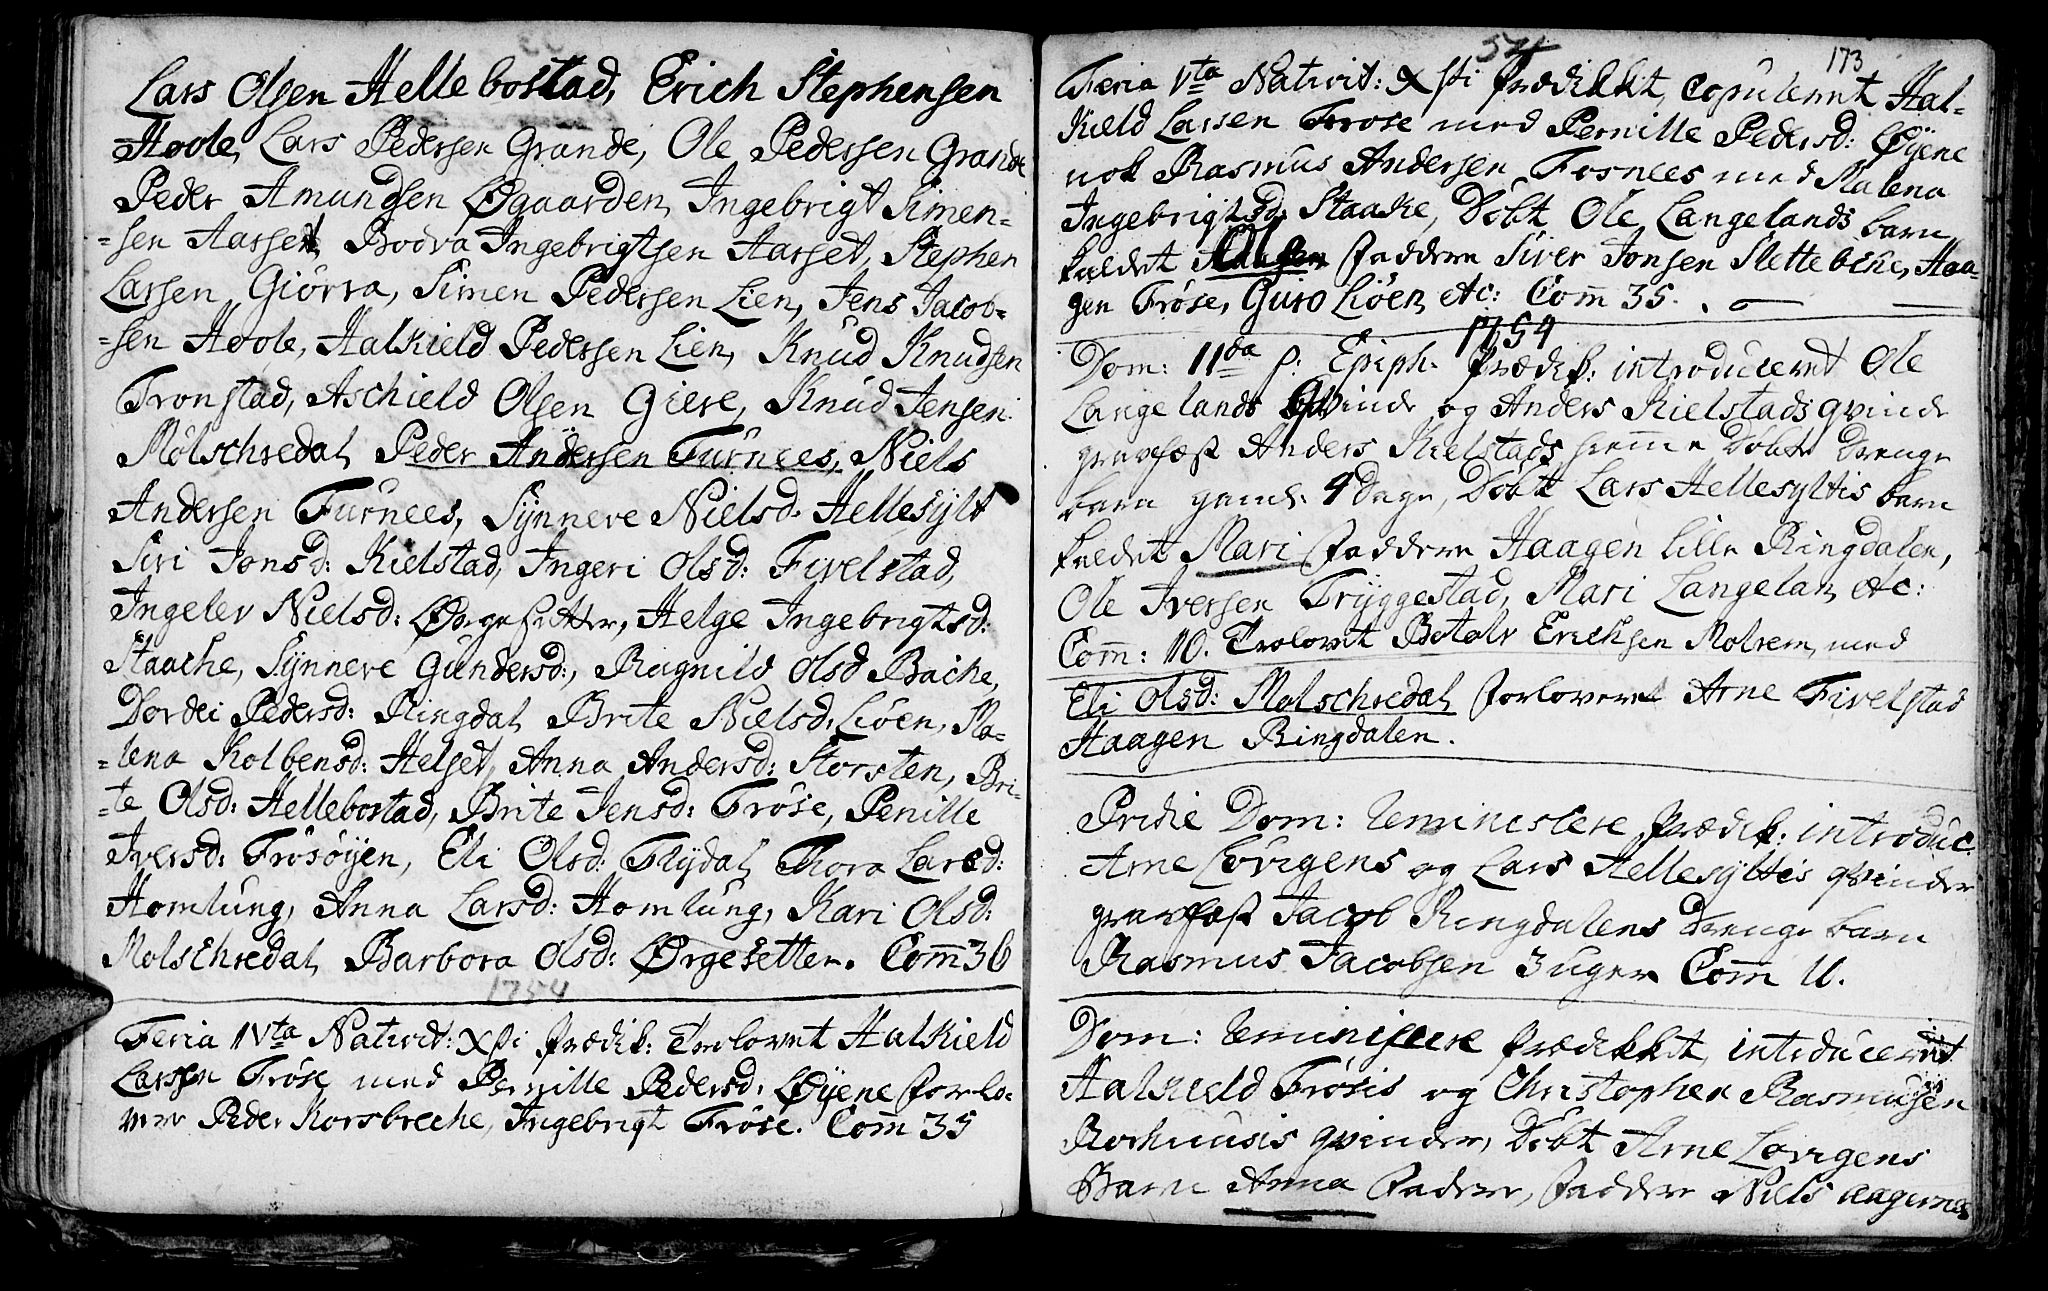 Lars Olsen Hellebostad, Erich Stephensen
Hoole, Lars Pedersen Grande, Ole Pedersen Grande
Peder Amundsen Øgaarden, Ingebrigt Simen-
-sen Aasset, Bodva Ingebrigtsen Aasset, Stephen
Larsen Giørra, Simen Pedersen Lien, Jens Jacob-
-sen Hoole, Halkield Pedersen Lien, Knud Knudsen
Tronstad, Aschield Olsen Giere, Knud Jensen
Molschredal, Peder Andersen Furnees, Niels
Andersen Furnees, Synneve Nielsd: Hellesylt
Siri Jonsd: Kielstad, Ingeri Olsd: Fivelstad,
Ingelev Nielsd: Ørgesetter, Helge Ingebrigtsd:
Staache, Synneve Gundersd:, Ragnild Olsd Bache,
Dordei Pedersd: Ringdal, Brite Nielsd: Liøen, Ma-
-lena Kolbensd: Helset, Anna Andersd: Storsten, Bri-
-te Olsd: Hellebostad, Brite Jensd: Frøse, Penille
Iversd: Frøsøyen, Eli Olsd: Flydal, Thora Larsd:
Homlung, Anna Larsd: Homlung, Kari Olsd:
Molschredal, Barbora Olsd: Ørgesetter. Com̄ 36
1754
Feria IVta Nativit: Xsti prædik: Trolovet Halkield
Larssen Frøse med Pernille Pedersd: Øyene forlo-
vere Peder Korsbreche, Ingebrigt Frøse. Com̄ 35
54
173
Feria Vta Nativit: Xsti prædikket, copuleret Hal-
kield Larsen Frøse med Pernille Pedersd: Øyene
nok Rasmus Andersen Fosnees med Malena
Ingebrigtsd: Staake, Døbt Ole Langelands barn
kaldet faddere Siver Jonsen Slettebche, Haa-
gen Frøse, Guro Liøen, etc: Com̄ 35.
1754
Dom: IIda p: Epiph. prædik: introduceret Ole
Langelands Qvinde og Anders Kielstads qvinde
gravfæst Anders Kielstads hieme Døbte Drenge
barn gaml: 9 Dage, Døbt Lars Hellesyltis barn
kaldet Mari faddere Haagen lille Ringdalen,
Ole Iversen Tryggestad, Mari Langelan, etc:
Com̄: 10. Trolovet Botolv Erichsen Molrem, med
Eli Olsd: Molschredal forlovere Arne Fivelstad
Haagen Ringdalen.
Pridie Dom: Reminiscere prædik: introduc:
Arne Løvigens og Lars Hellesyltis qvinder
gravfæst Jacob Ringdalens Drenge barn
Rasmus Jacobsen 3 uger Com̄ 11.
Dom: Reminiscere prædikket, introduceret
Halkield Frøsis og Christopher Rasmusen
qvinder, Døbt Arne Løvigens
Barn Anna faddere Niels